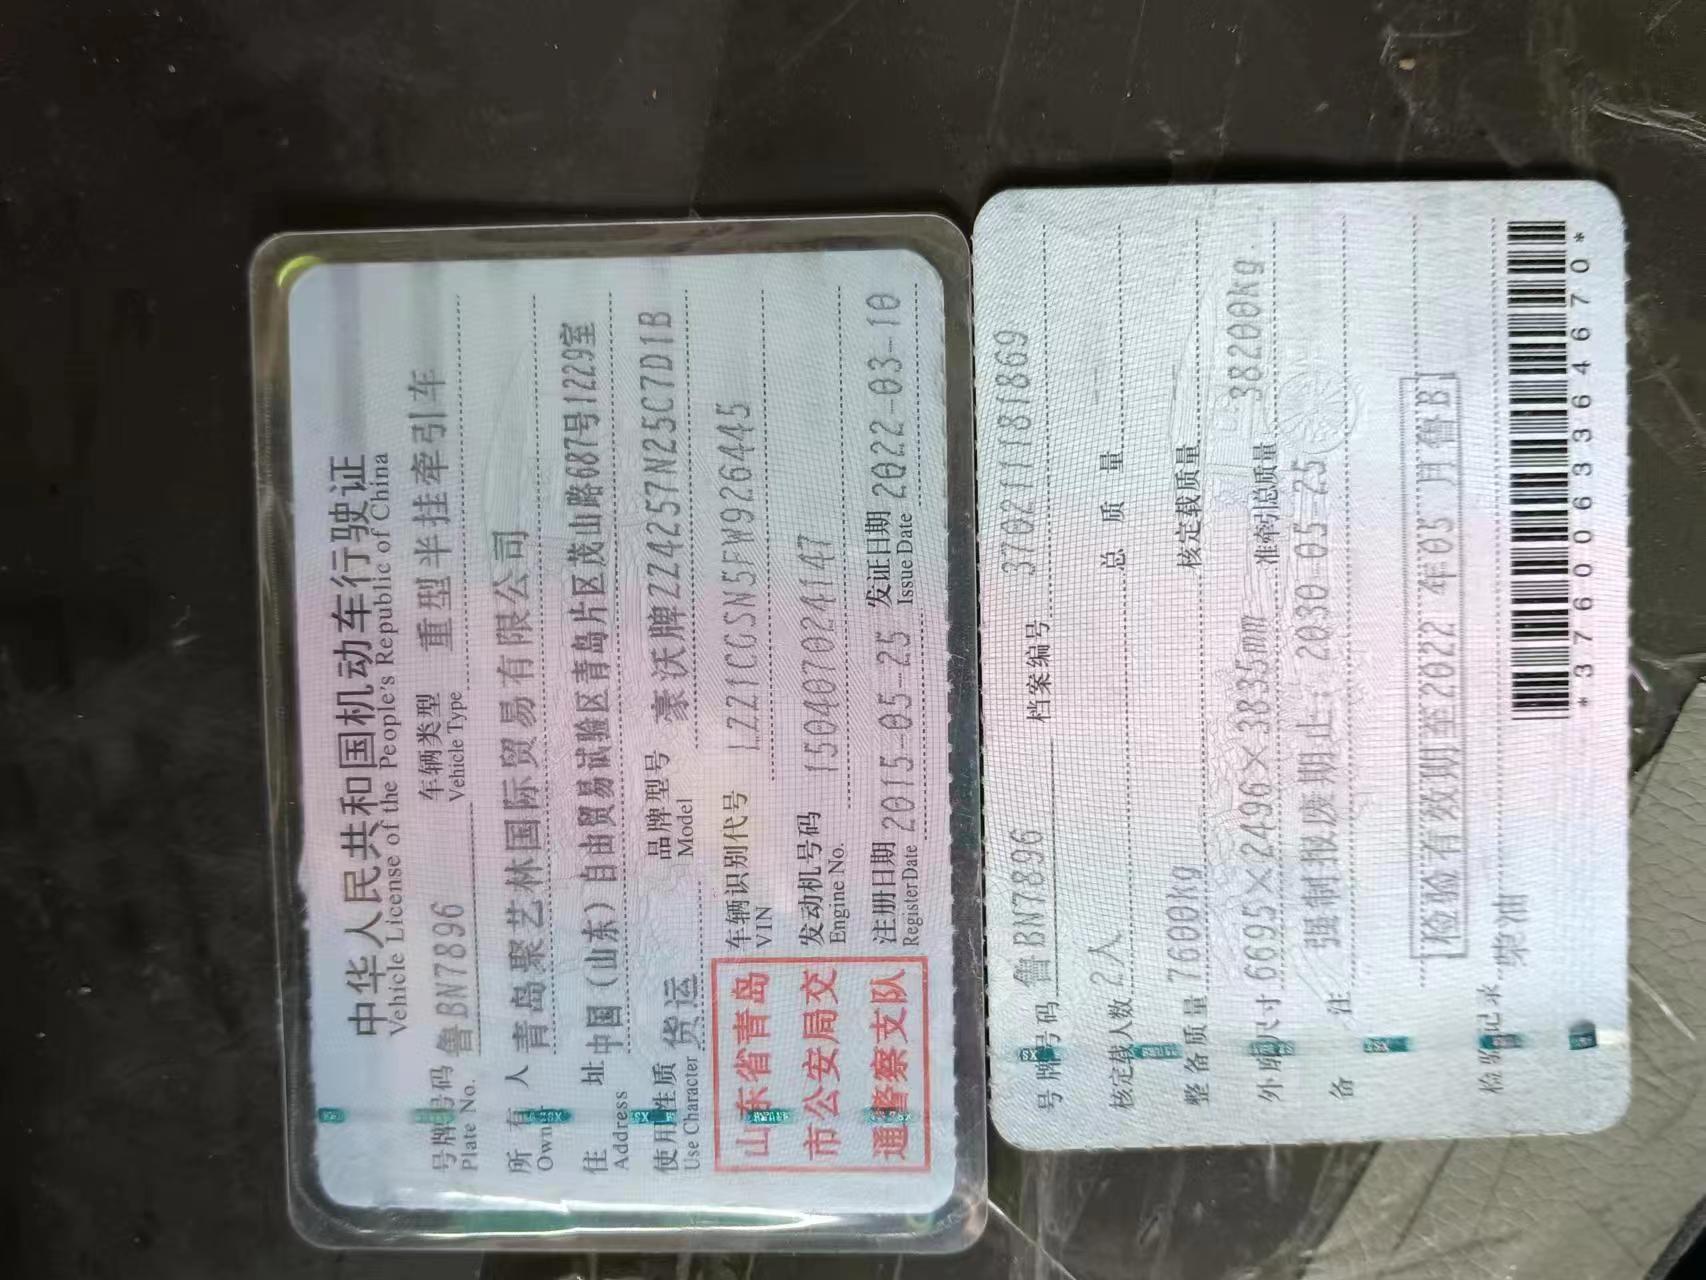 中华人民共和国机动车行驶证
Vehicle License of the People's Republic of China
号牌号码 鲁BN7896 车辆类型 重型半挂牵引车
Plate No. Vehicle Type
所有人 青岛聚艺林国际贸易有限公司
Owner
住址 中国(山东)自由贸易试验区青岛片区茂山路687号1229室
Address
使用性质 货运 品牌型号 豪沃牌ZZ4257N25C7D1B
Use Character Model
山东省青岛
市公安局交
通警察支队
车辆识别代号 LZZ1CGSN5FW926445
VIN
发动机号码 150407024147
Engine No.
注册日期 2015-05-25 发证日期 2022-03-10
Register Date Issue Date
号牌号码 鲁BN7896 档案编号 370211181869
核定载人数 2人 总质量 --
整备质量 7600kg 核定载质量 --
外廓尺寸 6695×2496×3835mm 准牵引总质量 38200kg
备注 强制报废期止:2030-05-25
检验有效期至2022年05月鲁B
检验记录 柴油
*3760063364670*